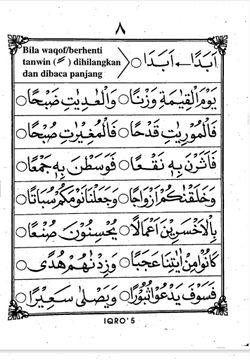 ٨
Bila waqof/berhenti
tanwin ( ــً ) dihilangkan
dan dibaca panjang
اَبَدًا ← اَبَدَا
يَوْمَ الْقِيٰمَةِ وَزْنًا ○ وَالْعٰدِيٰتِ ضَبْحًا ○
فَالْمُوْرِيٰتِ قَدْحًا ○ فَالْمُغِيْرٰتِ صُبْحًا ○
فَاَثَرْنَ بِهٖ نَقْعًا ○ فَوَسَطْنَ بِهٖ جَمْعًا ○
وَخَلَقْنٰكُمْ اَزْوَاجًا ○ وَجَعَلْنَا نَوْمَكُمْ سُبَاتًا ○
بِالْاَخْسَرِيْنَ اَعْمَالًا ○ يُحْسِنُوْنَ صُنْعًا ○
كَانُوْا مِنْ اٰيٰتِنَا عَجَبًا ○ وَزِدْنٰهُمْ هُدًى ○
فَسَوْفَ يَدْعُوْا ثُبُوْرًا ○ وَيَصْلٰى سَعِيْرًا ○
IQRO' 5